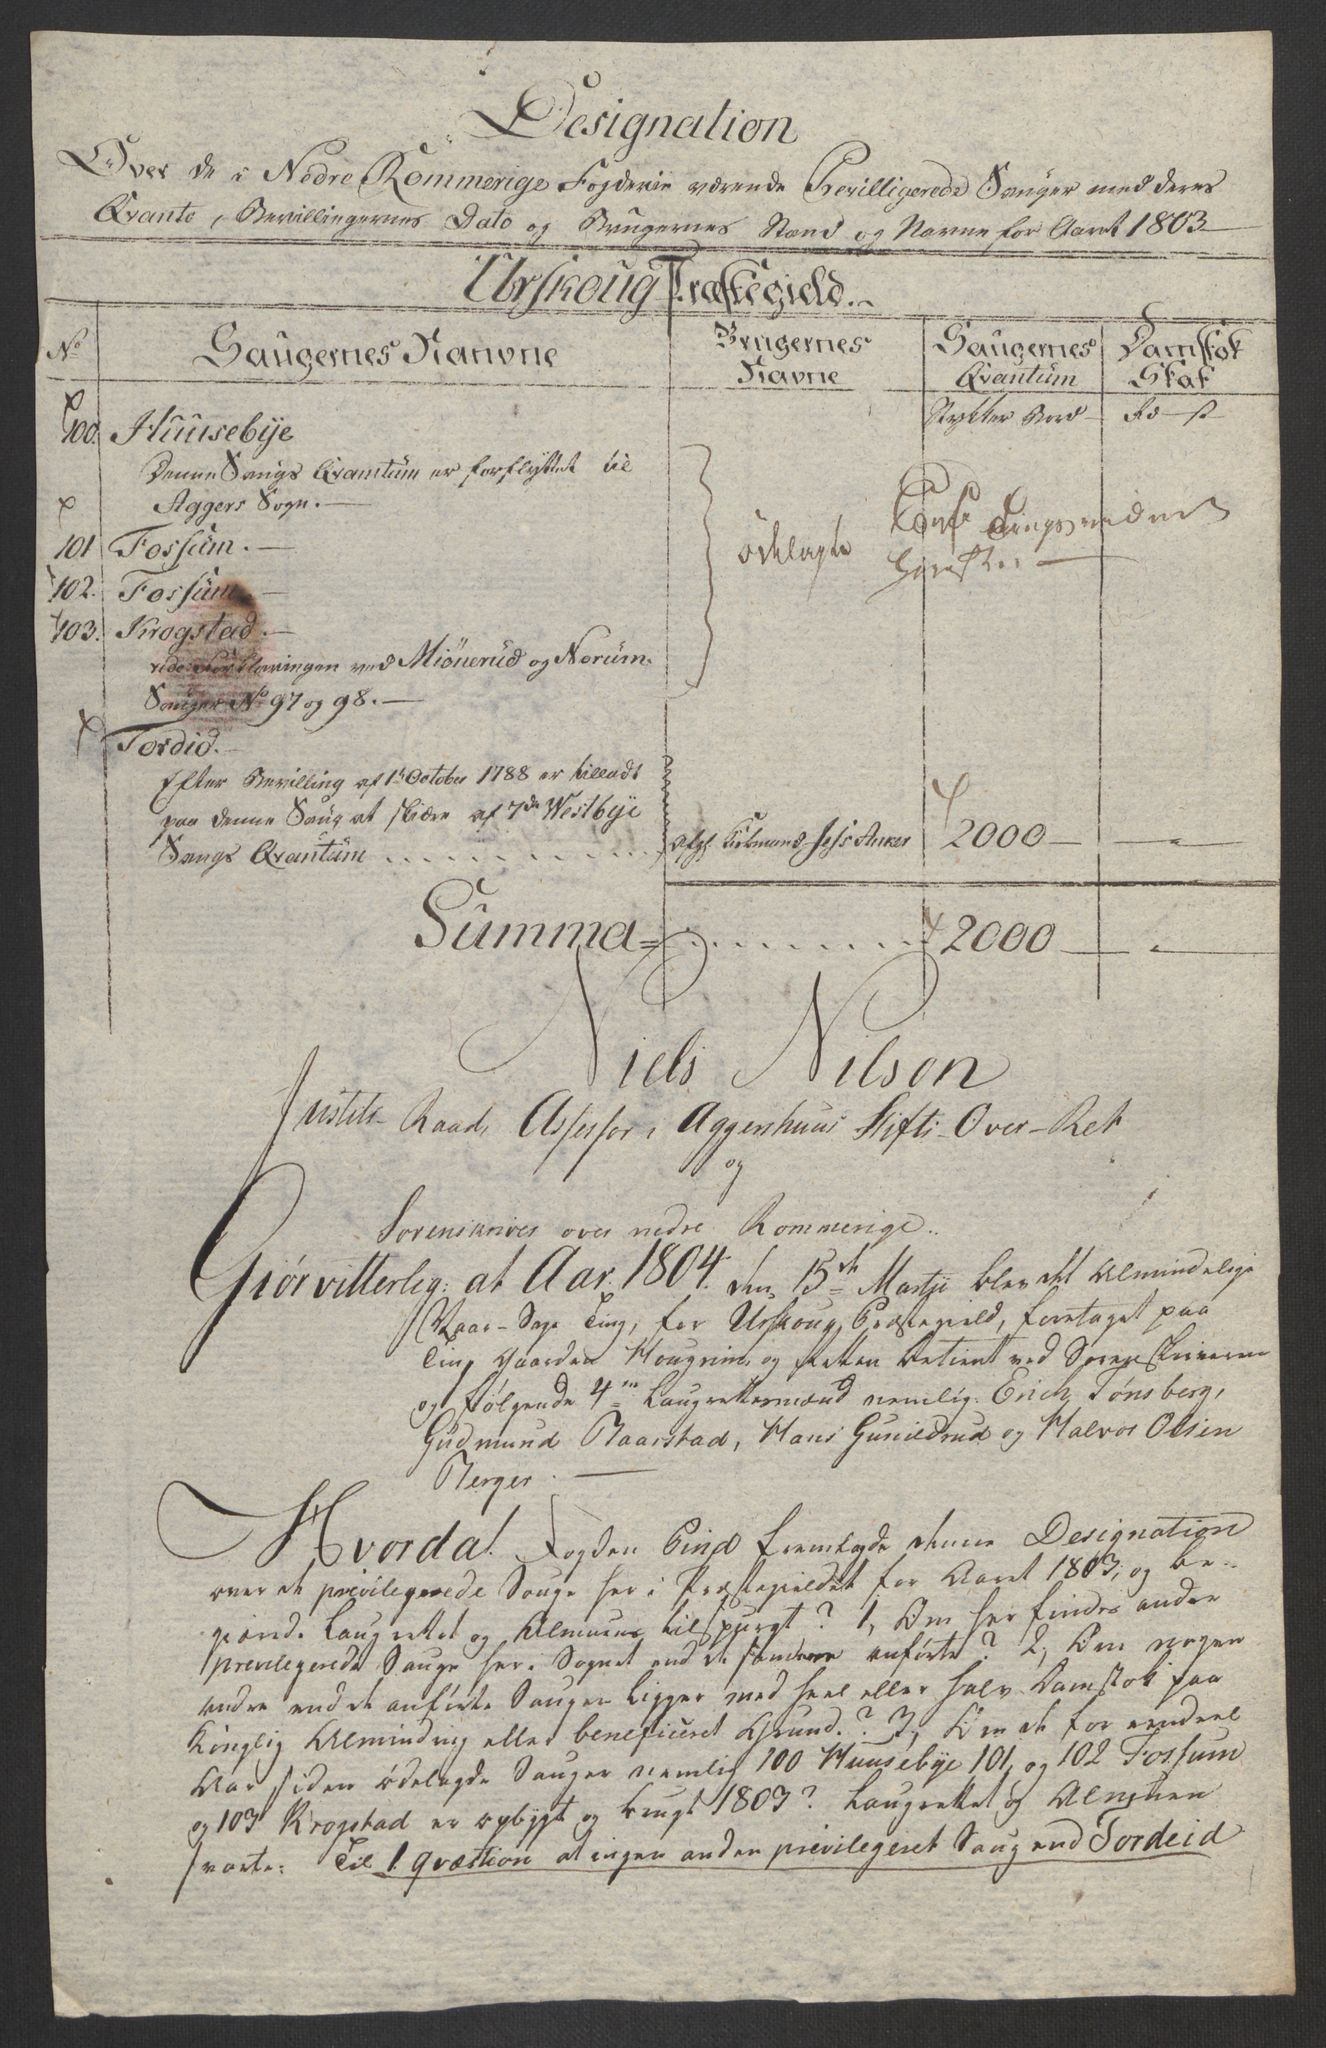 Designation
Over de i Nedre Rommerige Fogderie værende Previlligerede Sauger med deres
Qvanto, Bevillingernes Dato og Brugernes Stand og Navne for Aaret 1803
Urskoug Præstegield.
No Saugernes Navne Brugernes Navne Saugernes Qvantum Damstok Skat
Stykker Bord Rd s
100. Huusebye
Denne Saugs Qvantum er forflyttet til
Aggers Sogn.
101 Fossum.
102. Fossum
103. Krogstad.
ødelagte
vide Forklaringen ved Miönerud og Norum
Sauger No 97 og 98.
Tordid.
Efter Bevilling af 1st October 1788 er tilladt
paa denne Saug at skiære af 7de Westbye
Saugs Qvantum . . . . Anker 2000
Summa = . . . . 2000
Niels Nilson
Justits Raad, Assessor i Aggershuus Stifts Over-Ret
og
Sorenskriver over nedre Rommerige.
Giör vitterlig: at Aar. 1804. den 15de Martji blev det Almindelige
Vaar-Sage Ting, for Urskoug Præstegield, foretaget paa
Ting Gaarden Hougrim og Retten betient ved Sorenskriveren
og følgende 4re Laugrettesmænd nemlig: Erich Tönsberg,
Gudmund Baarstad, Hans Gunildrud og Halvor Olsen
Berger.
Hvorda! Fogden Bind fremlagde denne Designation
over de previlegerede Sauge her i Præstegieldet for Aaret 1803, og be-
giærede Laugrettet og Almuens tilspurgt? 1, Om her findes andre
previlegerede Sauge her i Sognet end de samme anførte? 2, Om nogen
andre end de anførte Sauger ligger med heel eller halv Damstok paa
Kongelig Alminding eller beneficeret Grund.? 3, Om de for eendeel
Aar siden ödelagde Sauger nemlig 100 Huusebye 101, og 102 Fossum
og 103 Krogstad er opbygt og brugt 1803? Laugrettet og Almuen
svarte: Til 1 qvæstion at ingen anden previlegeret Saug end Tordeid